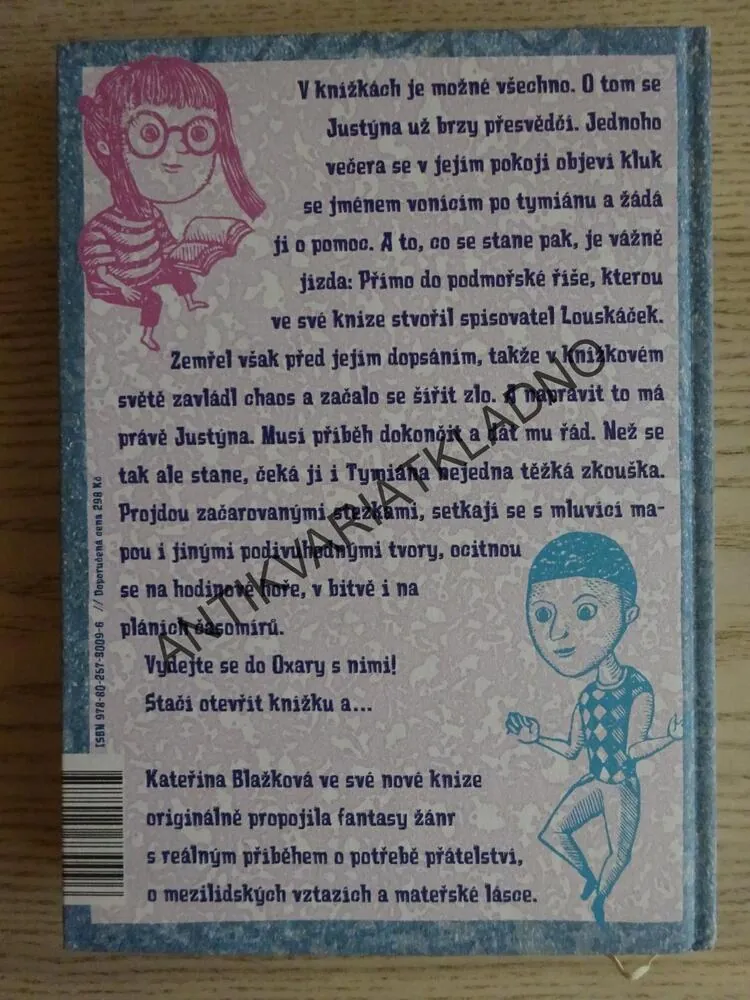 V knížkách je možné všechno. O tom se
Justýna už brzy přesvědčí. Jednoho
večera se v jejím pokoji objeví kluk
se jménem vonícím po tymiánu a žádá
ji o pomoc. A to, co se stane pak, je vážně
jízda: Přímo do podmořské říše, kterou
ve své knize stvořil spisovatel Louskáček.
Zemřel však před jejím dopsáním, takže v knižkovém
světě zavládl chaos a začalo se šířit zlo. A napravit to má
právě Justýna. Musí příběh dokončit a dát mu řád. Než se
tak ale stane, čeká ji i Tymiána nejedna těžká zkouška.
Projdou začarovanými stezkami, setkají se s mluvící ma-
pou i jinými podivuhodnými tvory, ocitnou
se na hodinové hoře, v bitvě i na
pláních časomírů.
Vydejte se do Oxary s nimi!
Stačí otevřít knížku a...
Kateřina Blažková ve své nové knize
originálně propojila fantasy žánr
s reálným příběhem o potřebě přátelství,
o mezilidských vztazích a mateřské lásce.
ISBN 978-80-257-3009-6 // Doporučená cena 298 Kč
ANTIKVARIATKLADNO